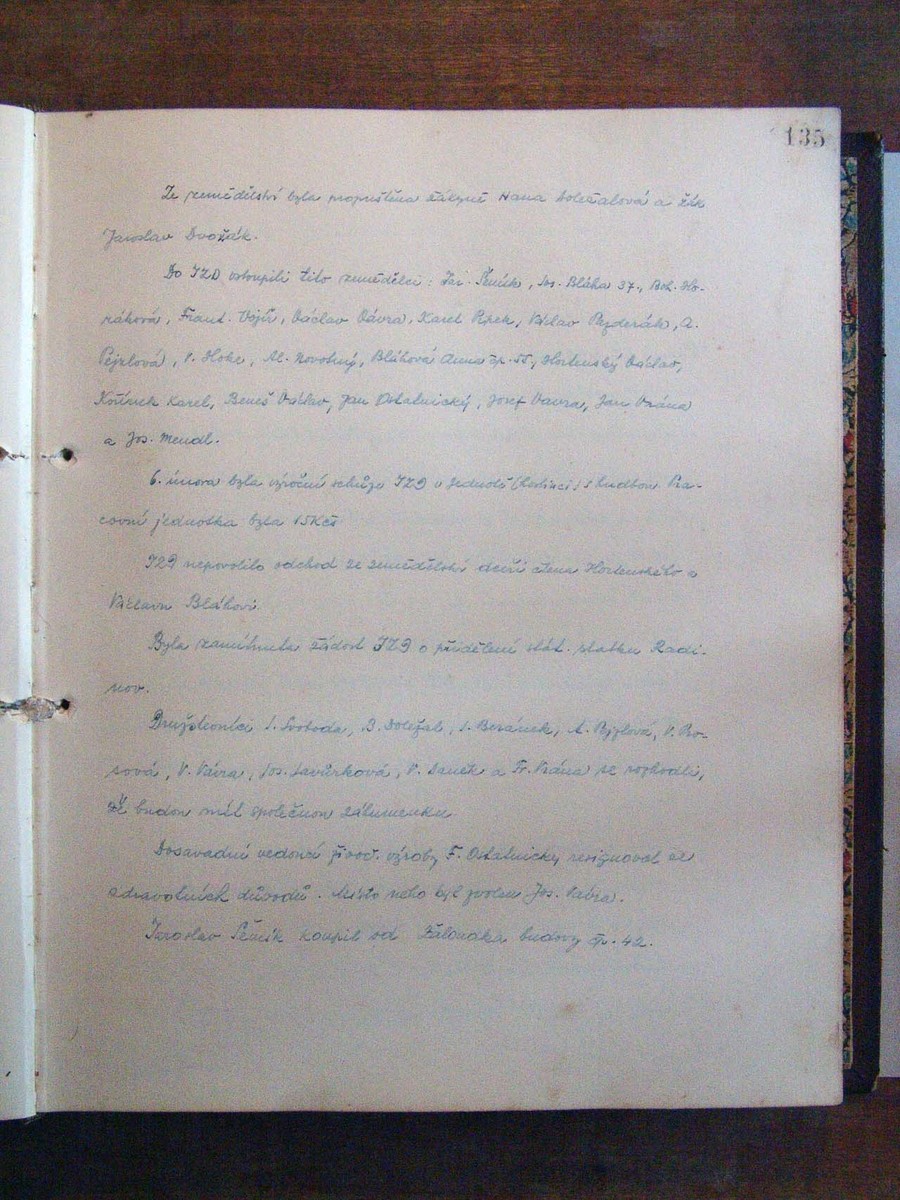 135
Ze zemědělství byla propuštěna žákyně Hana Doležalová a žák
Jaroslav Dvořák.
Do JZD vstoupili tito zemědělci: Jar. Šeník, Jos. Bláha 37., Boh. Ho-
ráková, Frant. Vojíř, Václav Vávra, Karel Pipek, Václav Pazderák, A.
Pejzlová, V. Hoke, Al. Novotný, Bláhová Anna čp. 55, Hortenský Václav,
Kořínek Karel, Beneš Václav, Jan Ostatnický, Josef Vavra, Jan Vrána
a Jos. Mendl.
6. února byla výroční schůze JZD v Jednotě (hostinci) s hudbou. Pra-
covní jednotka byla 15 Kčs
JZD nepovolilo odchod ze zemědělství dceři Hortenského a
Václavu Bláhovi.
Byla zamítnuta žádost JZD o přidělení stát. statku Radi-
nov.
Družstevníci J. Svoboda, B. Doležal, J. Beránek, A. Pejzlová, V. Ro-
sová, V. Vávra, Jos. Javůrková, V. Daněk a Fr. Vrána se rozhodli,
že budou mít společnou záhumenku.
Dosavadní vedoucí živoč. výroby F. Ostatnický resignoval ze
zdravotních důvodů. Místo něho byl zvolen Jos. Vávra.
Jaroslav Šeník koupil od Žáloudka budovy čp. 42.